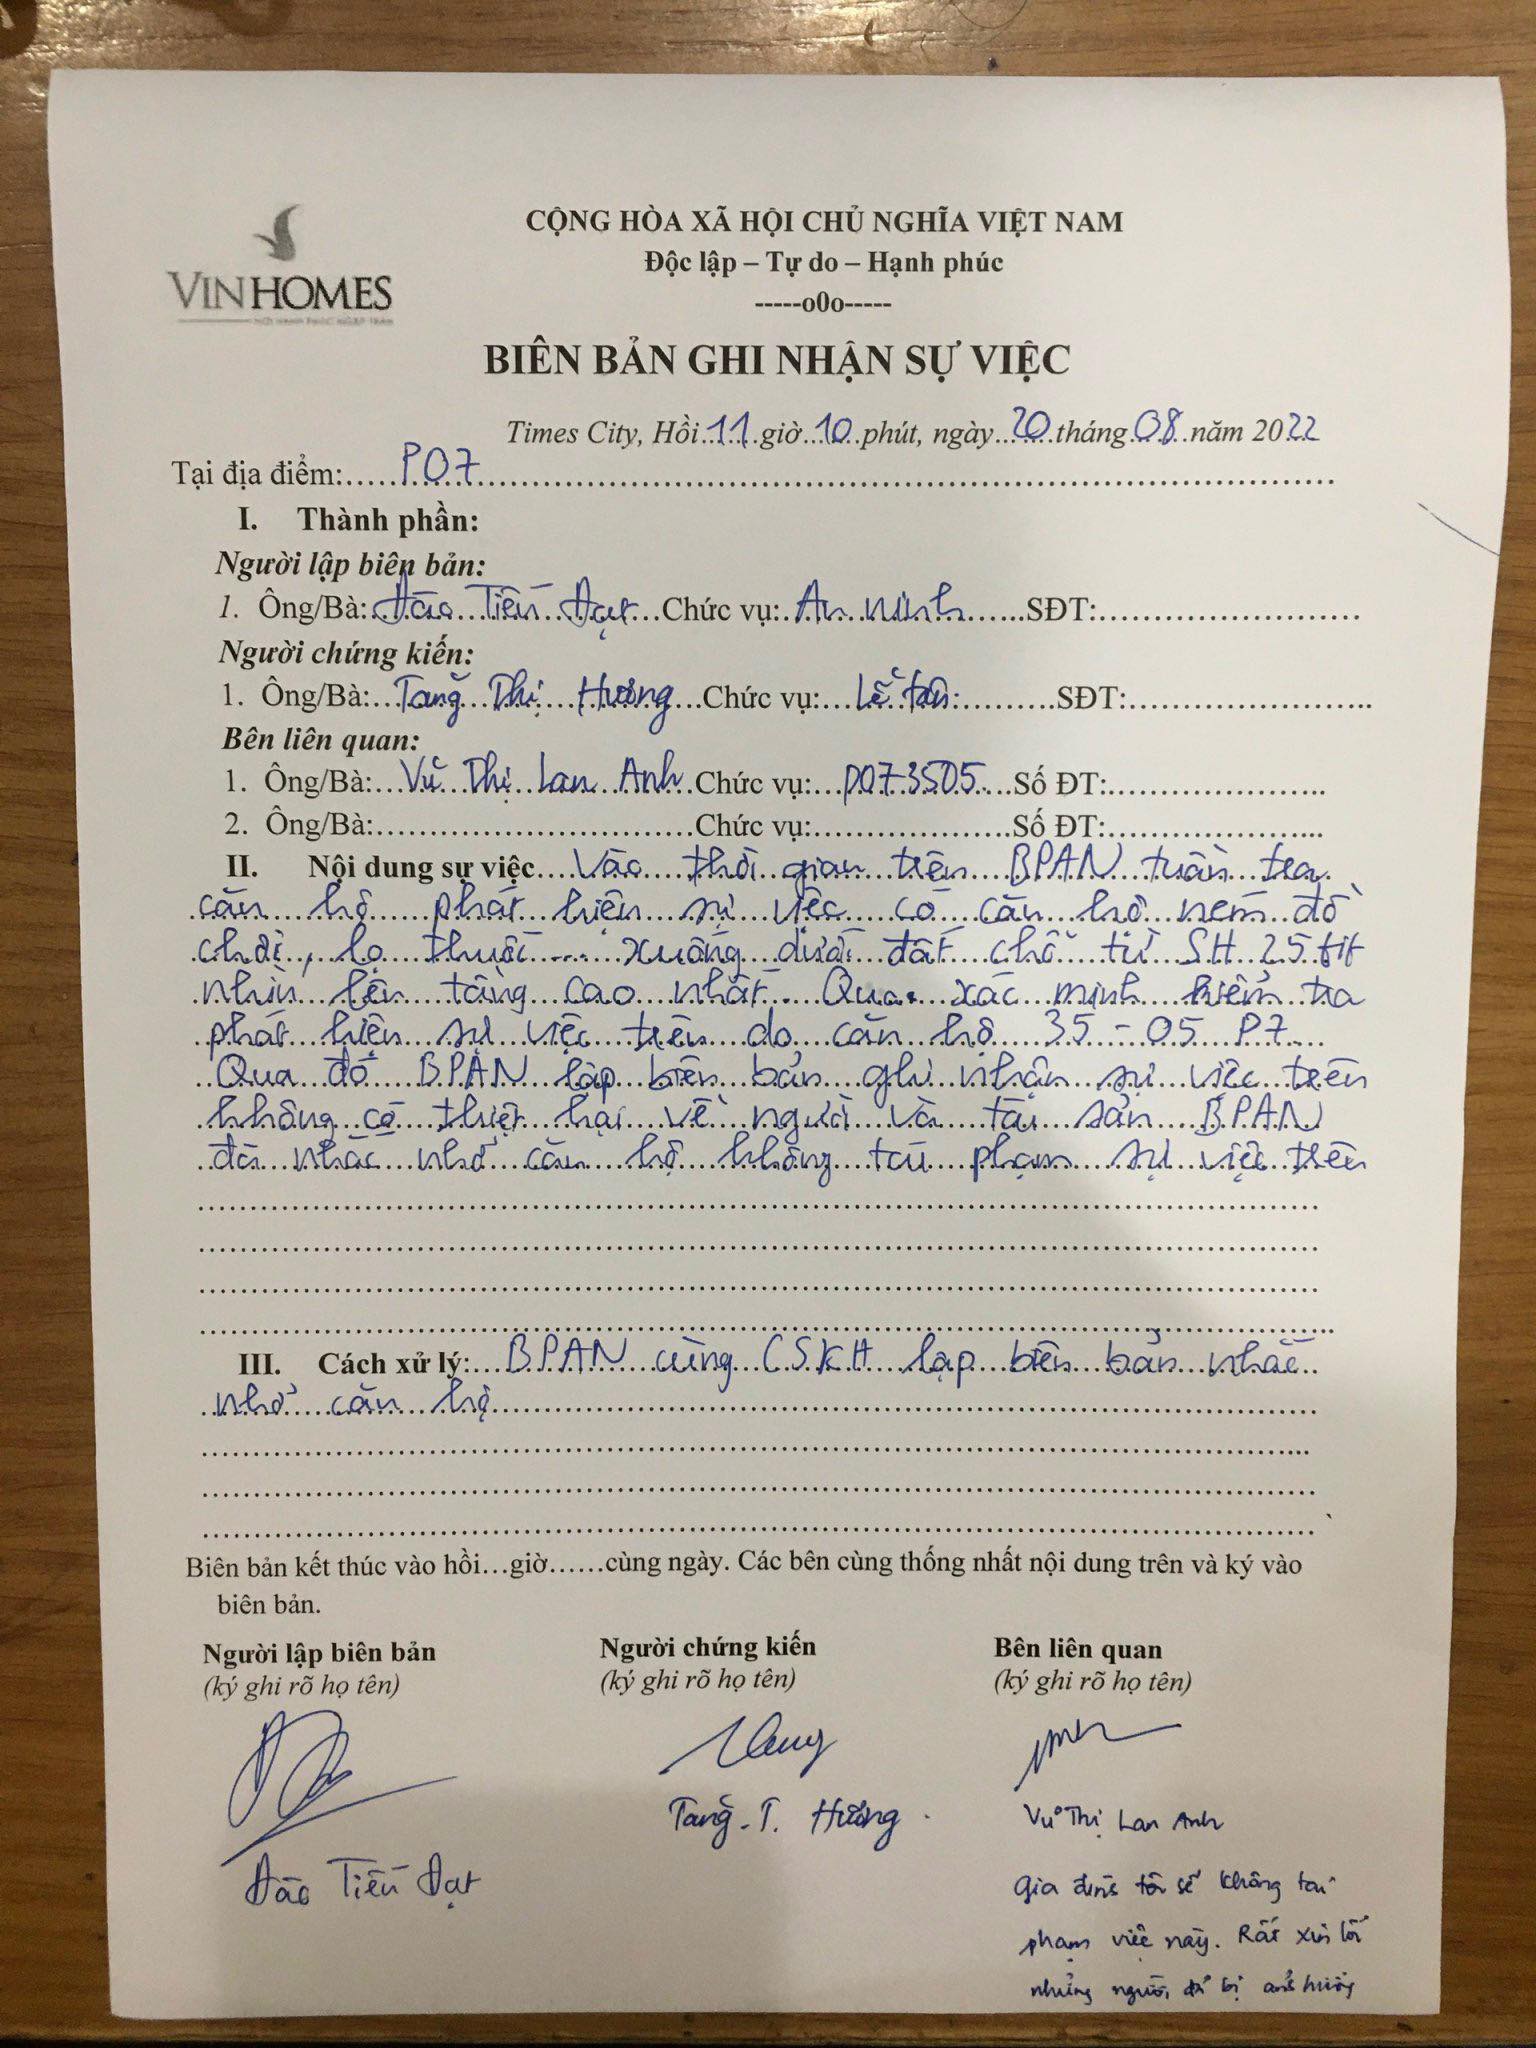 VINHOMES
CỘNG HÒA XÃ HỘI CHỦ NGHĨA VIỆT NAM
Độc lập – Tự do – Hạnh phúc
-----o0o-----
BIÊN BẢN GHI NHẬN SỰ VIỆC
Times City, Hồi 11 giờ 10 phút, ngày 20 tháng 08 năm 2022
Tại địa điểm: P07
I. Thành phần:
Người lập biên bản:
1. Ông/Bà: Đào Tiến Đạt Chức vụ: An ninh SĐT:
Người chứng kiến:
1. Ông/Bà: Tăng Thị Hương Chức vụ: Lễ tân SĐT:
Bên liên quan:
1. Ông/Bà: Vũ Thị Lan Anh Chức vụ: P073505 Số ĐT:
2. Ông/Bà: Chức vụ: Số ĐT:
II. Nội dung sự việc Vào thời gian trên BPAN tuần tra
căn hộ phát hiện sự việc có căn hộ ném đồ
chơi, lọ thuốc .... xuống dưới đất chỗ từ SH 25
nhìn lên tầng cao nhất. Qua xác minh kiểm tra
phát hiện sự việc trên do căn hộ 35 - 05 P7
Qua đó BPAN lập biên bản ghi nhận sự việc trên
không có thiệt hại về người và tài sản BPAN
đã nhắc nhở căn hộ không tái phạm sự việc trên
III. Cách xử lý: BPAN cùng CSKH lập biên bản nhắc
nhở căn hộ
Biên bản kết thúc vào hồi…giờ……cùng ngày. Các bên cùng thống nhất nội dung trên và ký vào
biên bản.
Người lập biên bản Người chứng kiến Bên liên quan
(ký ghi rõ họ tên) (ký ghi rõ họ tên) (ký ghi rõ họ tên)
Đào Tiến Đạt Tăng. T. Hương Vũ Thị Lan Anh
Gia đình tôi sẽ không tái
phạm việc này. Rất xin lỗi
những người đã bị ảnh hưởng